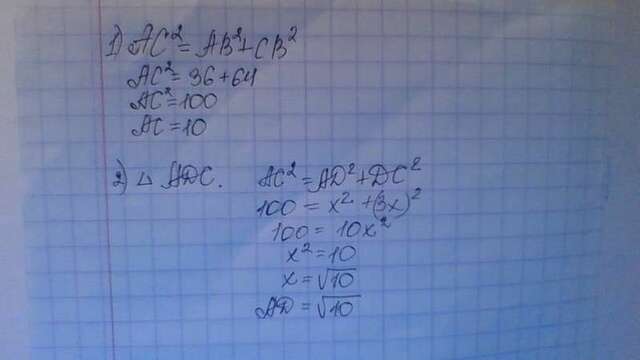 1) AC² = AB² + CB²
AC² = 36 + 64
AC² = 100
AC = 10
2) △ ADC. AC² = AD² + DC²
100 = x² + (3x)²
100 = 10x²
x² = 10
x = √10
AD = √10